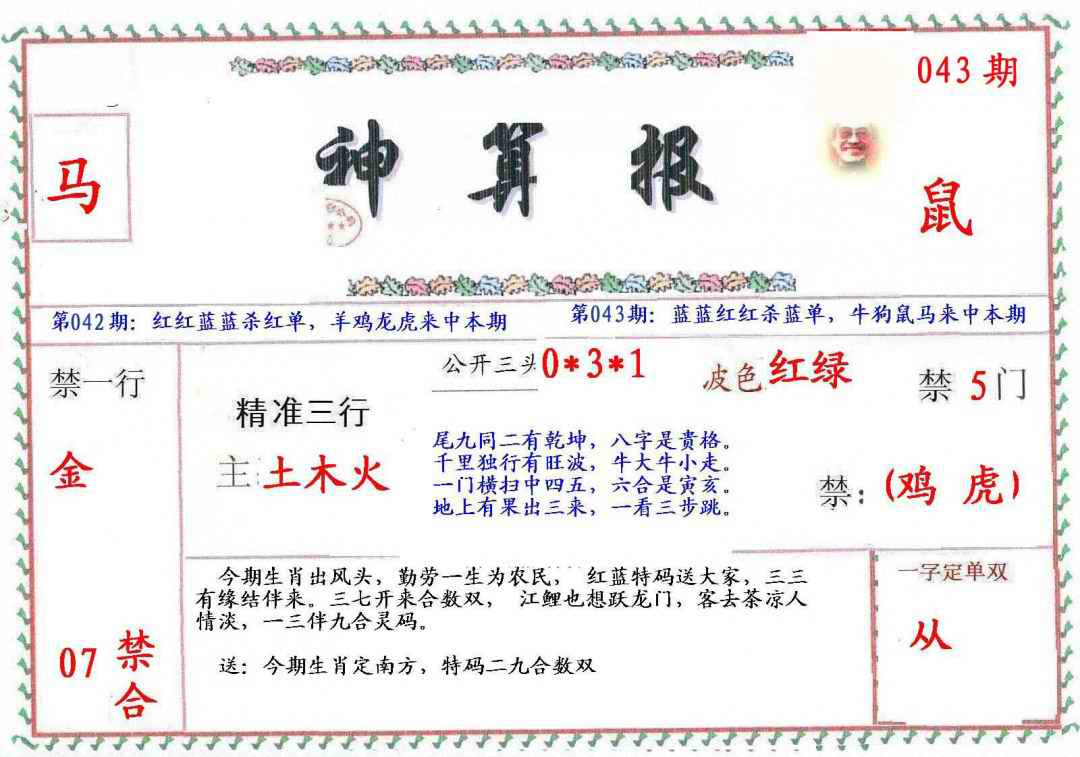 043期
神算报
马
鼠
第042期：红红蓝蓝杀红单，羊鸡龙虎来中本期
第043期：蓝蓝红红杀蓝单，牛狗鼠马来中本期
禁一行
金
07 禁合
精准三行
主：土木火
公开三头0*3*1
波色红绿
禁5门
尾九同二有乾坤，八字是贵格。
千里独行有旺波，牛大牛小走。
一门横扫中四五，六合是寅亥。
地上有果出三来，一看三步跳。
禁：(鸡 虎)
今期生肖出风头，勤劳一生为农民， 红蓝特码送大家，三三
有缘结伴来。三七开来合数双， 江鲤也想跃龙门，客去茶凉人
情淡，一三伴九合灵码。
送：今期生肖定南方，特码二九合数双
一字定单双
从